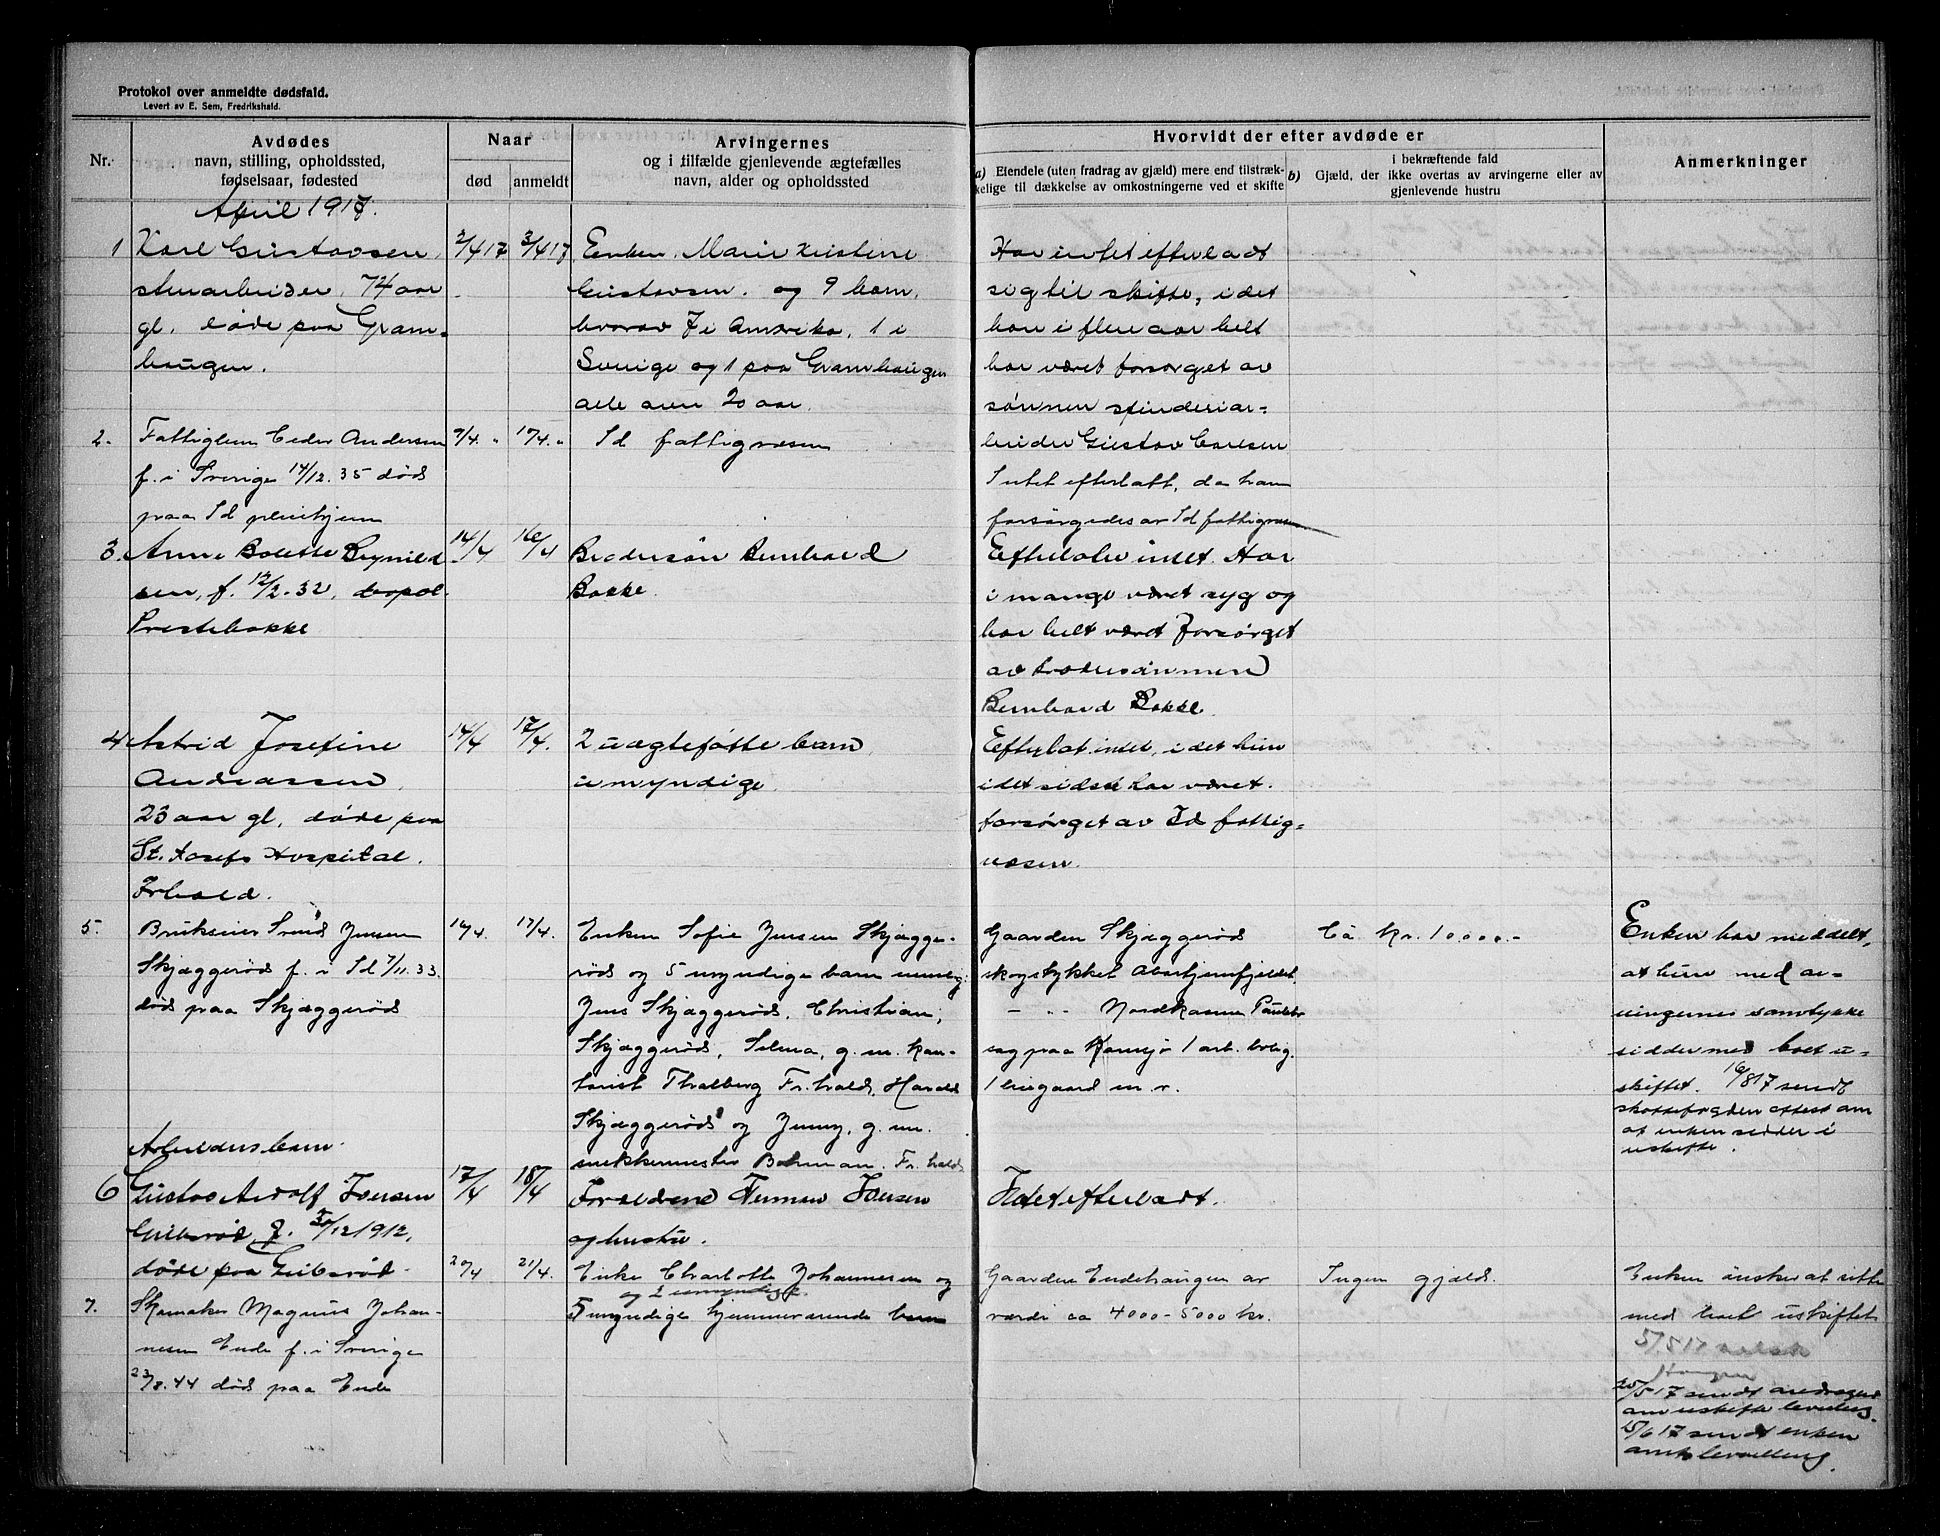 Protokol over anmeldte dødsfald.
Levert av E. Sem, Fredrikshald.
Nr.
Avdødes
navn, stilling, opholdssted,
fødselsaar, fødested
Naar
død
anmeldt
Arvingernes
og i tilfælde gjenlevende ægtefælles
navn, alder og opholdssted
Hvorvidt der efter avdøde er
a) Eiendele (uten fradrag av gjæld) mere end tilstræk-
kelige til dækkelse av omkostningerne ved et skifte
i bekræftende fald
b) Gjæld, der ikke overtas av arvingerne eller av
gjenlevende hustru
Anmerkninger
April 1917.
1
Karl Gustavsen,
stenarbeider, 74 aar
gl, døde paa Gram-
haugen.
2/4 17
3/4 17
Enken, Marie Kristine
Gustavsen. og 9 barn,
hvorav 7 i Amerika, 1 i
Sverige og 1 paa Gramhaugen
alle over 20 aar.
Har intet efterladt
sig til skifte, idet
han i flere aar helt
har været forsørget av
sønnen spinderiar-
beider Gustav Carlsen
2.
Fattiglem Peder Andersen
f. i Sverige 14/12.35 død
paa Id pleiehjem
9/4. "
17/4. "
Id fattigvæsen
Intet efterlatt, da han
forsørgedes av Id fattigvæsen
3.
Anne Bolette Brynild
sen, f. 12/2.32, bopæl.
Prestebakke
14/4
16/4
Brodersøn Bernhard
Bakke.
Efterlater intet. Har
i mange været syg og
har helt været forsørget
av brodersønnen
Bernhard Bakke.
4
Astrid Josefine
Andreassen,
23 aar gl, døde paa
St. Josefs Hospital,
Frhald.
14/4
17/4.
2 uægtefødte barn,
umyndige.
Efterlot intet, idet hun
i det sidste har været
forsørget av Id fattig-
væsen.
5.
Brukseier Svend Jensen
Skjæggerød f. i Id 7/11.33.
død paa Skjæggerød
16/4.
17/4.
Enken Sofie Jensen Skjægge-
rød og 5 myndige barn nemlig:
Jens Skjæggerød, Christian,
Skjæggerød, Selma, g. m. kon-
torist Thalberg Fr.hald, Harald
Skjæggerød og Jenny, g. m.
snekkermester Bohman. Fr.hald
Gaarden Skjæggerød
skogstykket
- " - Nordkasene
sag paa Kornsjø 1 arb. bolig.
1 leiegaard m. v.
Ca. kr. 10.000.-
Enken har meddelt,
at hun med ar-
vingernes samtykke
sidder med boet u-
skiftet. 16/8 17 sendt
skattefogden attest om
at enken sidder i
uskifte.
Arbeidersbarn
6
Gustav Adolf Iversen
f. 30/12 1912,
døde paa
17/4
18/4
Forældrene Herman Iversen
og hustru.
Intet efterladt.
7.
Skomaker Magnus Johan-
nesen Ende f. i Sverige
23/8.44 død paa Ende
20/4
21/4.
Enke Charlotte Johannesen og
og 2 umyndige
5 myndige hjemmeværende barn
Gaarden Endehaugen av
værdi ca 4000-5000 kr.
Ingen gjæld.
Enken ønsker at sitte
med boet uskiftet
5/5 17
Haugen
20/5 17 sendt andragende
om uskifte bevilling.
15/6 17 sendt enken
bevilling.